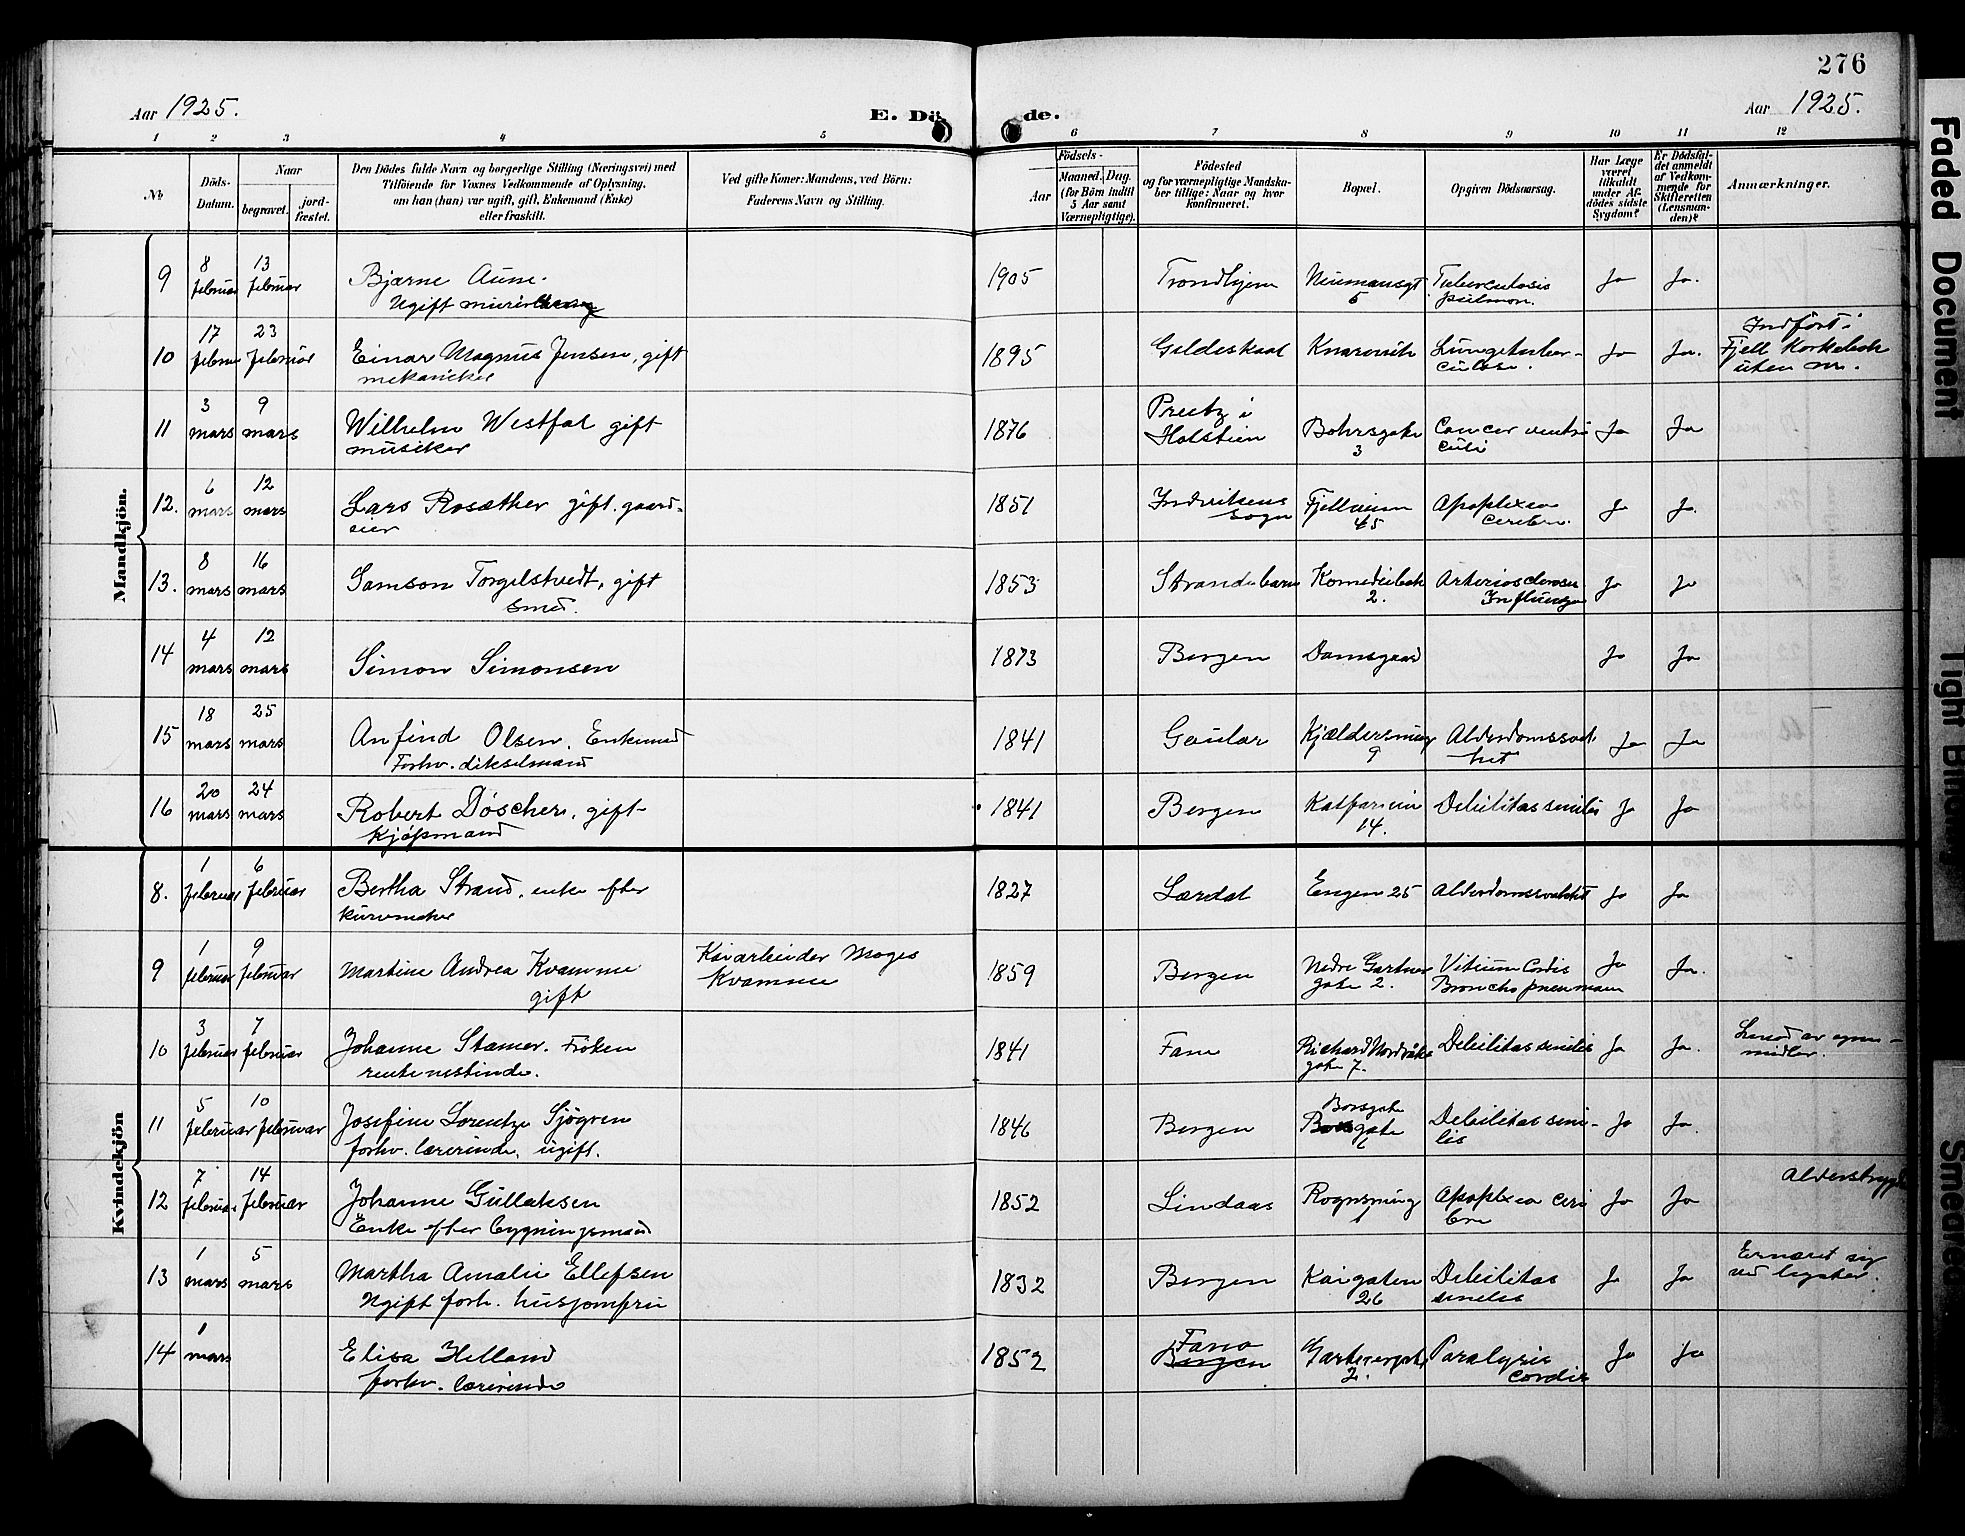 276
Aar 1925.
E. Dö de.
Aar 1925.
1 2 3 4 5 6 7 8 9 10 11 12
No
Döds-Datum.
Naar
begravet.
jord-fæstet.
Den Dödes fulde Navn og borgerlige Stilling (Næringsvei) med
Tilföiende for Voxnes Vedkommende af Oplysning,
om han (hun) var ugift, gift, Enkemand (Enke)
eller fraskilt.
Ved gifte Koner: Mandens, ved Börn:
Faderens Navn og Stilling.
Födsels-
Aar
Maaned. Dag.
(for Börn indtil
5 Aar samt
Værnepligtige).
Födested
og for værnepligtige Mandska-
ber tillige: Naar og hvor
konfirmeret.
Bopæl.
Opgiven Dödsaarsag.
Har Læge
været
tilkaldt
under Af-
dödes sidste
Sygdom?
Er Dödsfal-
det anmeldt
af Vedkom-
mende for
Skifteretten
(Lensman-
den)?
Anmærkninger.
Mandkjön.
9 8 februar 13 februar Bjarne Aune. 1905 Trondhjem Neumansgt 5 Tuberculosis pulmon. Ja Ja.
Ugift
10 17 februar 23 februar Einar Magnus Jensen, gift 1895 Gildeskaal Knarvik Lungetuber-culose. Ja Ja. Indført i Fjell Kirkebok uten nr.
mekaniker
11 3 mars 9 mars Wilhelm Westfal gift 1876 Preetz i Holstein Bohrsgate 3 Cancer ventri culi Ja Ja
musiker
12. 6 mars 12 mars Lars Rosæther gift. gaard- 1851 Indviksens sogn Fjellveien 45 Apoplexea cerebri. Ja Ja.
eier
13. 8 mars 16 mars Samson Torgelstvedt, gift 1853 Strandebarm Komediebak 2. Arteriosclerose Influenza Ja Ja
smed.
14 4 mars 12 mars Simon Simonsen 1873 Bergen Damsgaard Ja Ja
15 18 mars 25 mars Anfind Olsen. Enkemand 1841 Gaular Kjældersmug 9 Alderdomssvak-het Ja Ja
Forhv. dikselmand
16 20 mars 24 mars Robert Döscher, gift 1841 Bergen Kalfarvein 14. Debilitas senilis Ja Ja
Kjøpmand
Kvindekjön
8. 1 februar 6 februar Bertha Strand, enke efter 1827 Lærdal Engen 25 Alderdomssvakhet Ja Ja
kurvmaker
9 1 februar 9 februar Martine Andrea Kvamme Kaiarbeider Moges Kvamme 1859 Bergen Nedre Gartner gate 2. Vitium Cordis Bronchopneumoni Ja Ja.
gift
10 3 februar 7 februar Johanne Stamer. Frøken 1841 Fane Richard Nordråks gate 7. Debilitas senilis Ja Ja. Levod av egne midler.
rentenistinde.
11 5 februar 10 februar Josefine Lorentze Sjögren 1846 Bergen Borsgate 6 Debilitas seni-lis Ja Ja.
forhv. lærerinde, ugift.
12 7 februar 14 februar Johanne Gullaksen 1852 Lindaas Rognsmug 1 Apoplexea cere bre Ja Ja Alderstrygd
Enke efter bygningsmand
13 1 mars 5 mars Martha Amalie Ellefsen 1832 Bergen Kaigaten 26 Debilitas senilis Ja Ja Ernæret sig ved legater.
Ugift forh. husjomfru
14 1 mars Elisa Helland 1852 Fana Bergen Gartnergate 2. Paralysis cordis Ja Ja
forhv. lærerinde
Faded Document
Tight Binding
Smeared